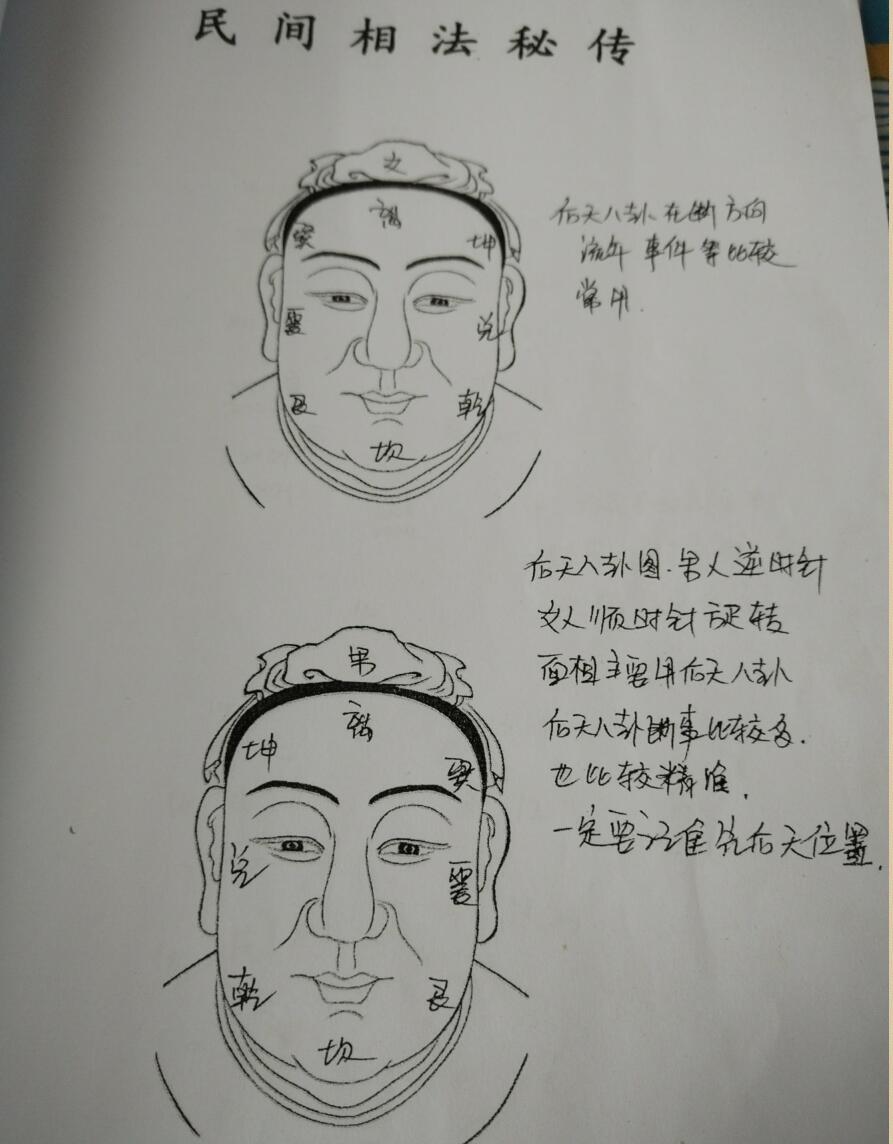 民间相法秘传
女
离
巽
坤
震
兑
艮
乾
坎
后天八卦在断方向
流年事件等比较
常用.
后天八卦图.男人逆时针
女人顺时针旋转
面相主要用后天八卦
后天八卦断事比较多.
也比较精准.
一定要记准先后天位置.
男
离
坤
巽
兑
震
乾
艮
坎